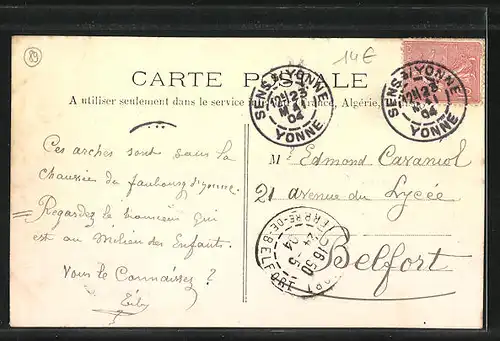 89
14€
CARTE POSTALE
A utiliser seulement dans le service France, Algérie,
SENS S/ YONNE
12H 23
MAI
04
YONNE
SENS S/ YONNE
23
MAI
04
YONNE
Ces arches sont sous la
chaussée du faubourg d'yonne.
Regardez le monsieur qui
est au Milieu des Enfants.
Vous le Connaissez ?
M Edmond
21 avenue du Lycée
Belfort
16 50
24 - 5
04
DE-BELFORT